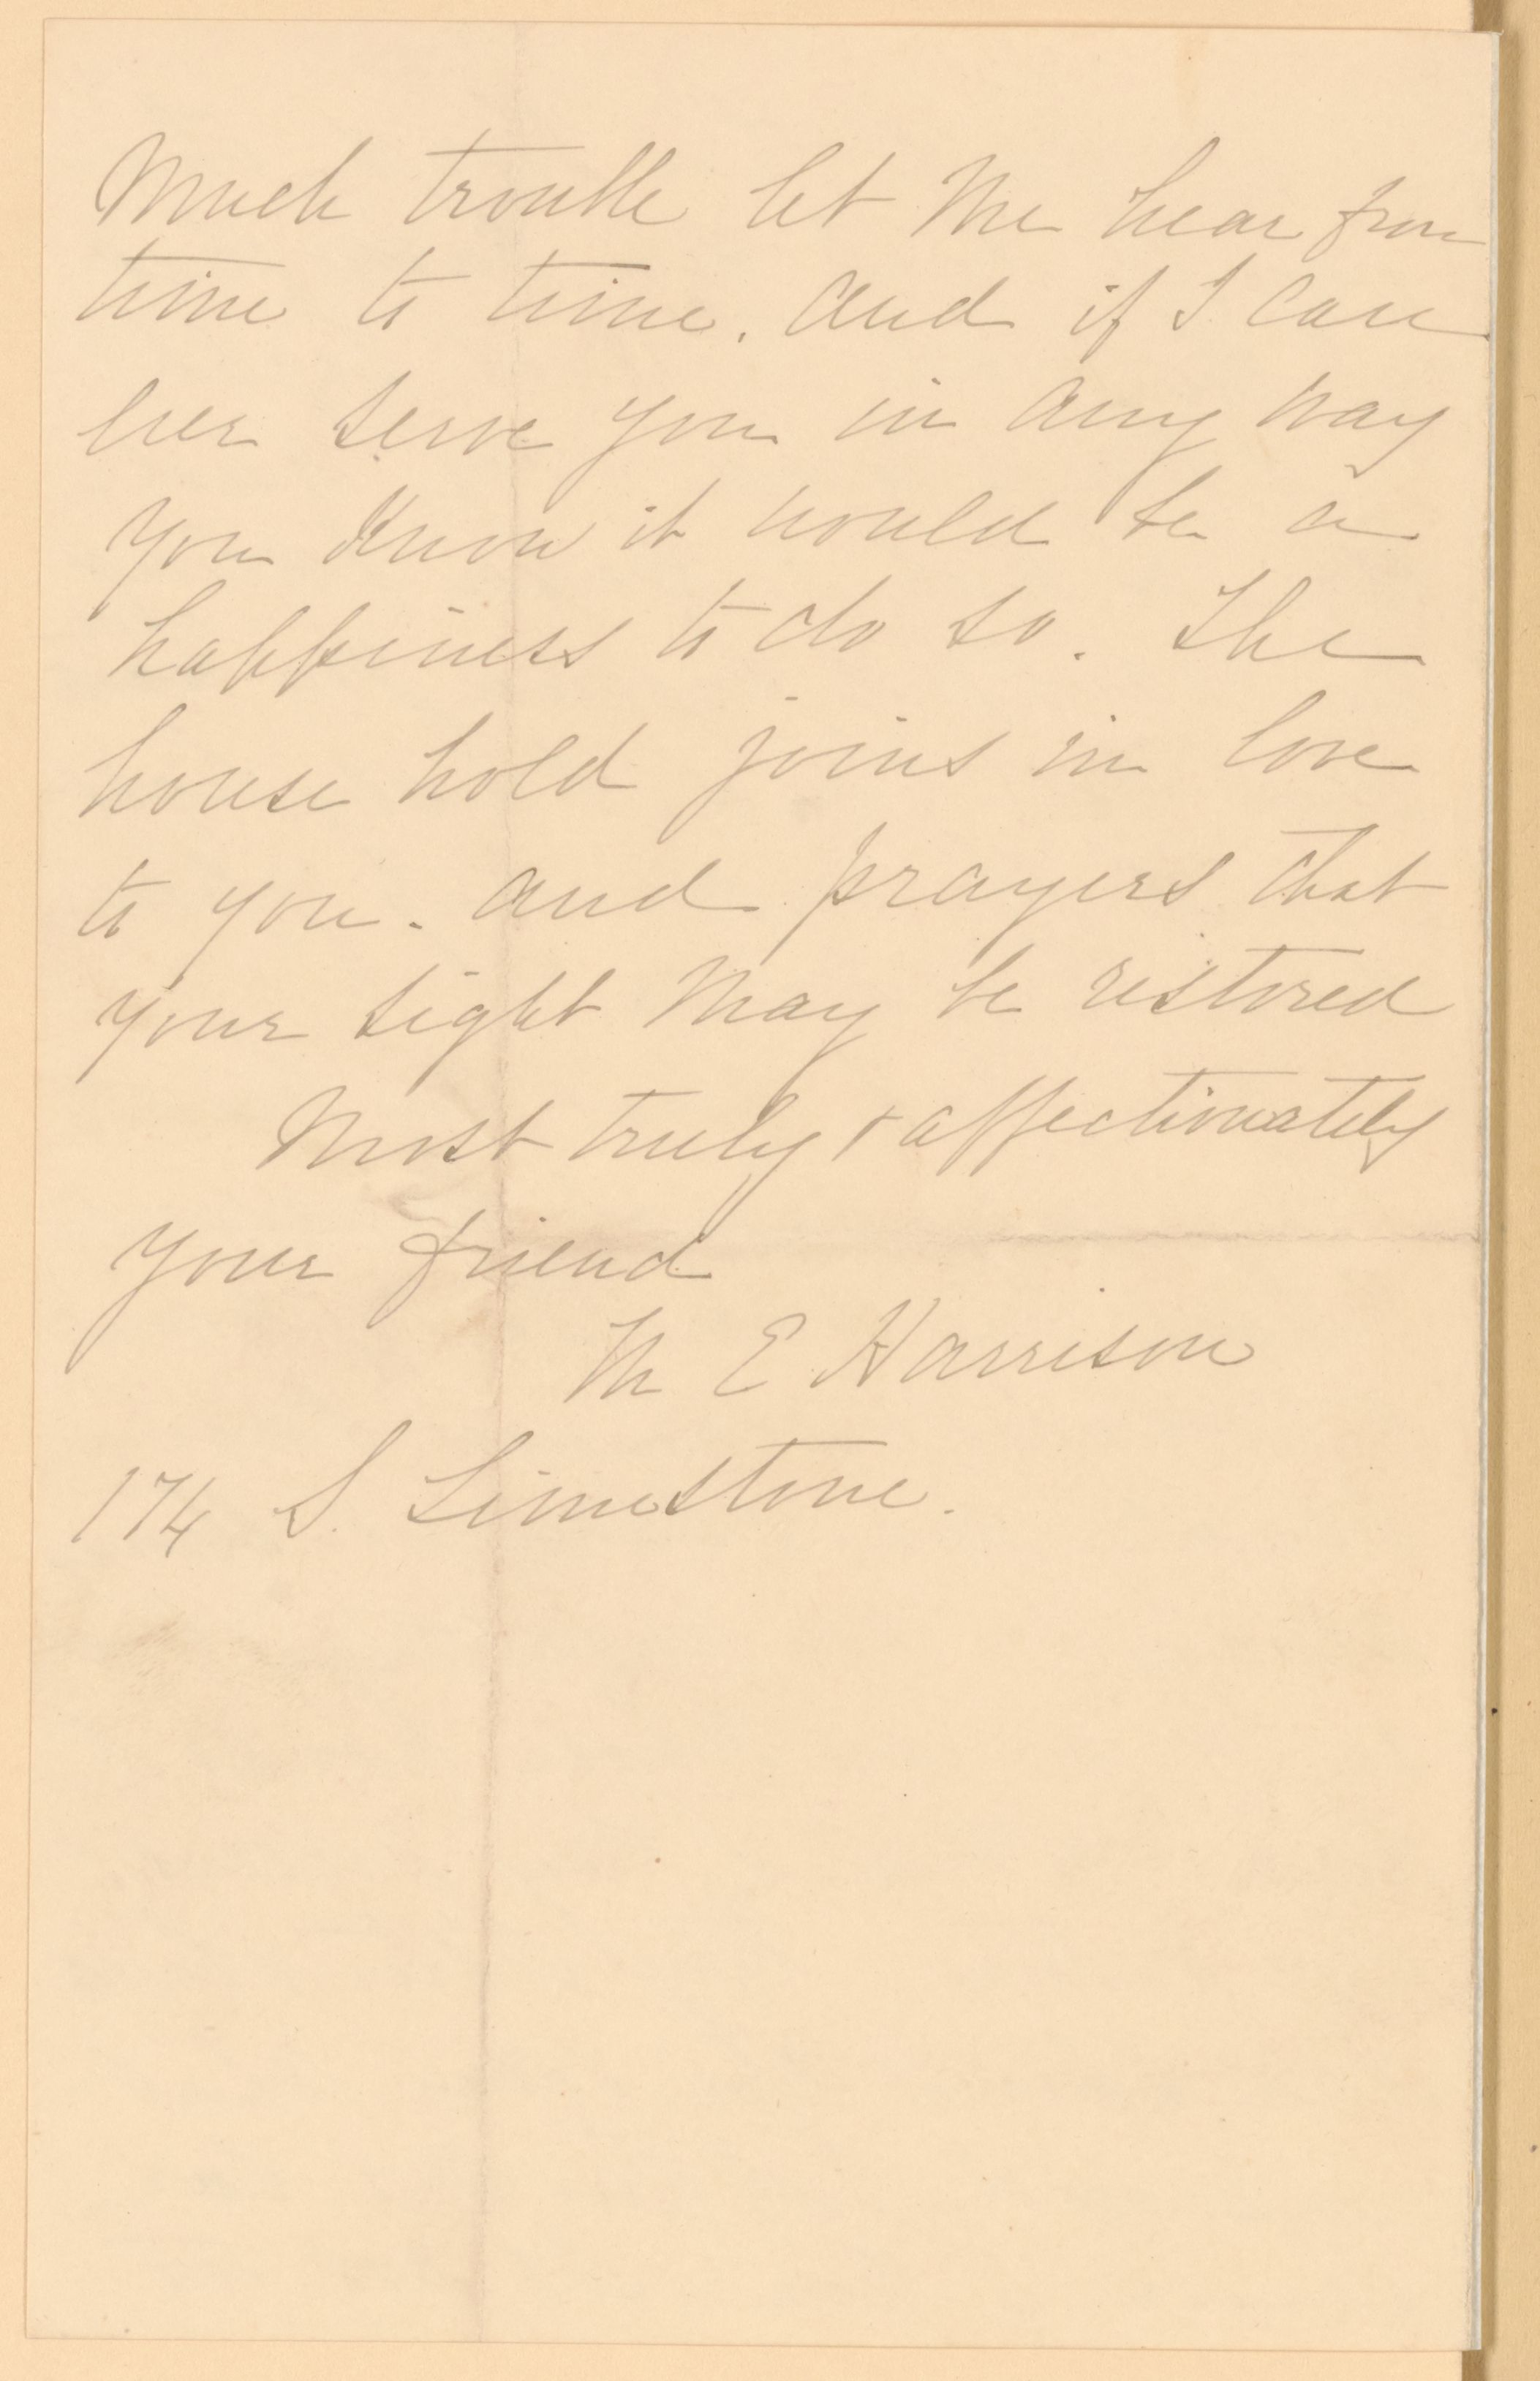 Much trouble let me hear from
time to time. And if I can
ever serve you in any way
you know it would be a
happiness to do so. The
house hold joins in love
to you. and prayers that
your sight may be restored
Most truly & affectionately
your friend
M E Harrison
174 S. Limestone.